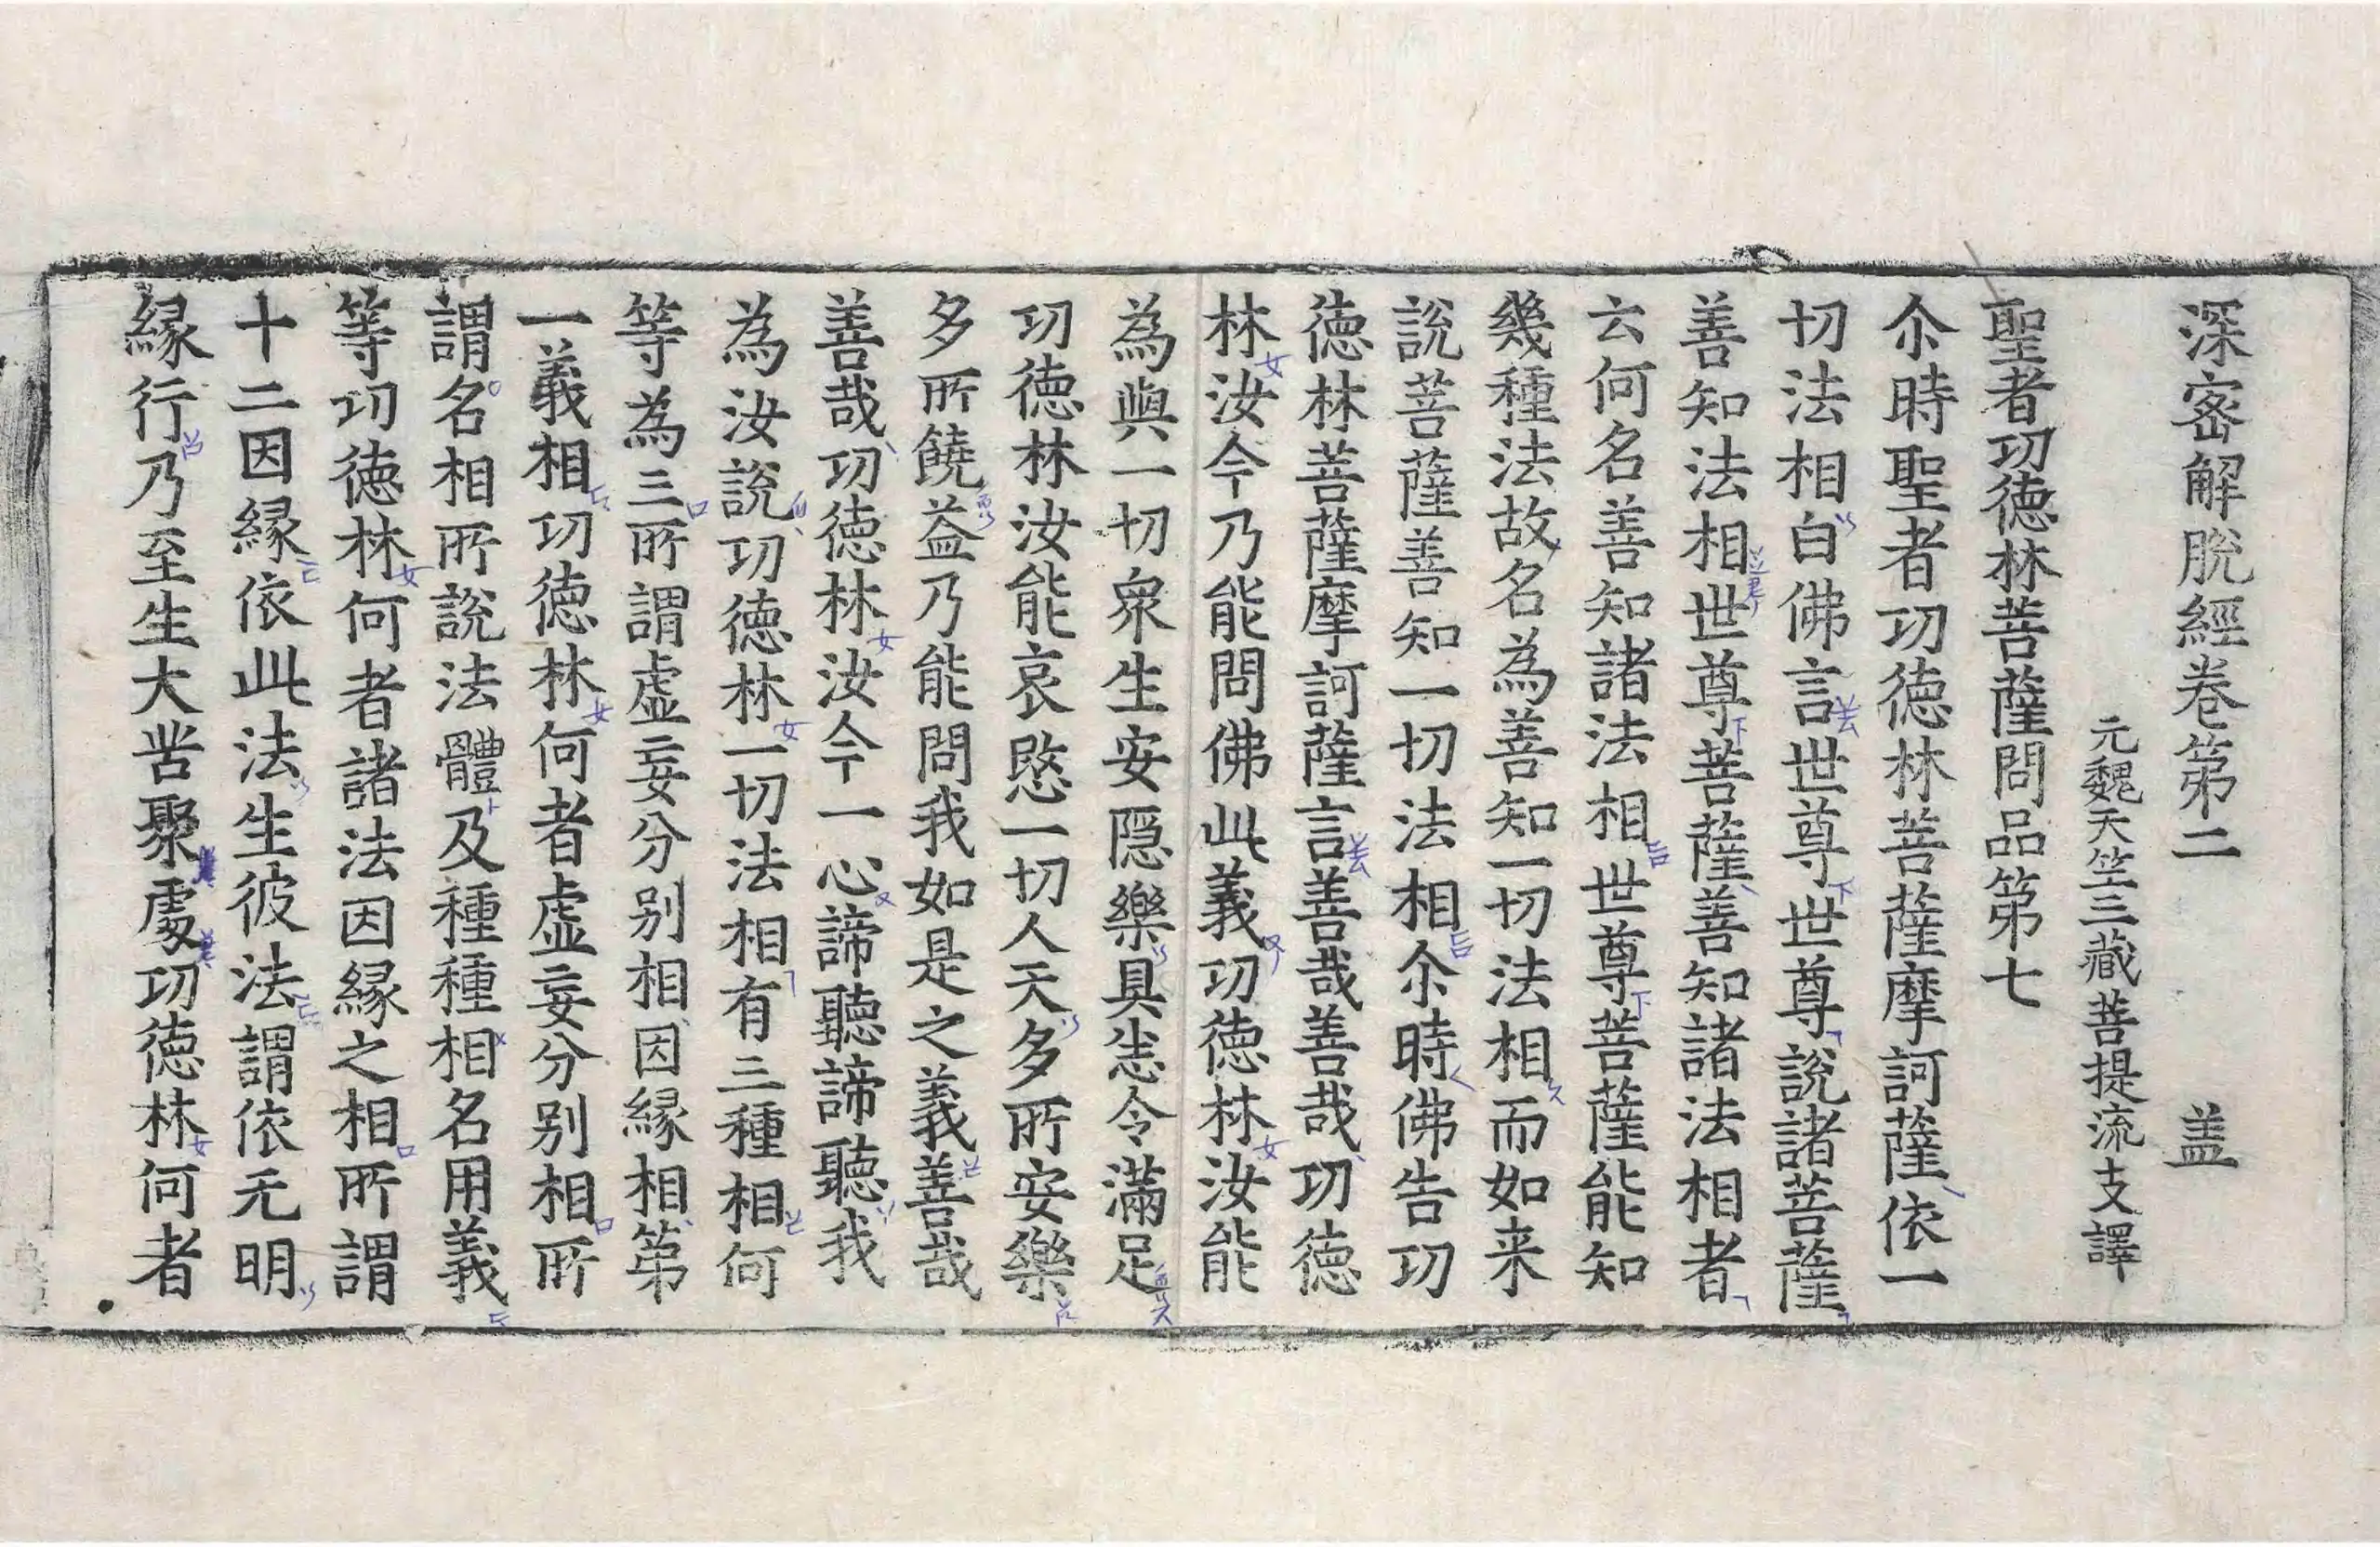 深密解脫經卷第二 盖
元魏天竺三藏菩提流支譯
聖者功德林菩薩問品第七
尒時聖者功德林菩薩摩訶薩依一
切法相白佛言世尊世尊說諸菩薩
善知法相世尊菩薩善知諸法相者
云何名善知諸法相世尊菩薩能知
幾種法故名為善知一切法相而如来
說菩薩善知一切法相尒時佛告功
德林菩薩摩訶薩言善哉善哉功德
林汝今乃能問佛此義功德林汝能
為與一切衆生安隱樂具悉令滿足
功德林汝能哀愍一切人天多所安樂
多所饒益乃能問我如是之義善哉
善哉功德林汝今一心諦聽諦聽我
為汝說功德林一切法相有三種相何
等為三所謂虛妄分別相因緣相第
一義相功德林何者虛妄分別相所
謂名相所說法體及種種相名用義
等功德林何者諸法因緣之相所謂
十二因緣依此法生彼法謂依无明
緣行乃至生大苦聚處功德林何者